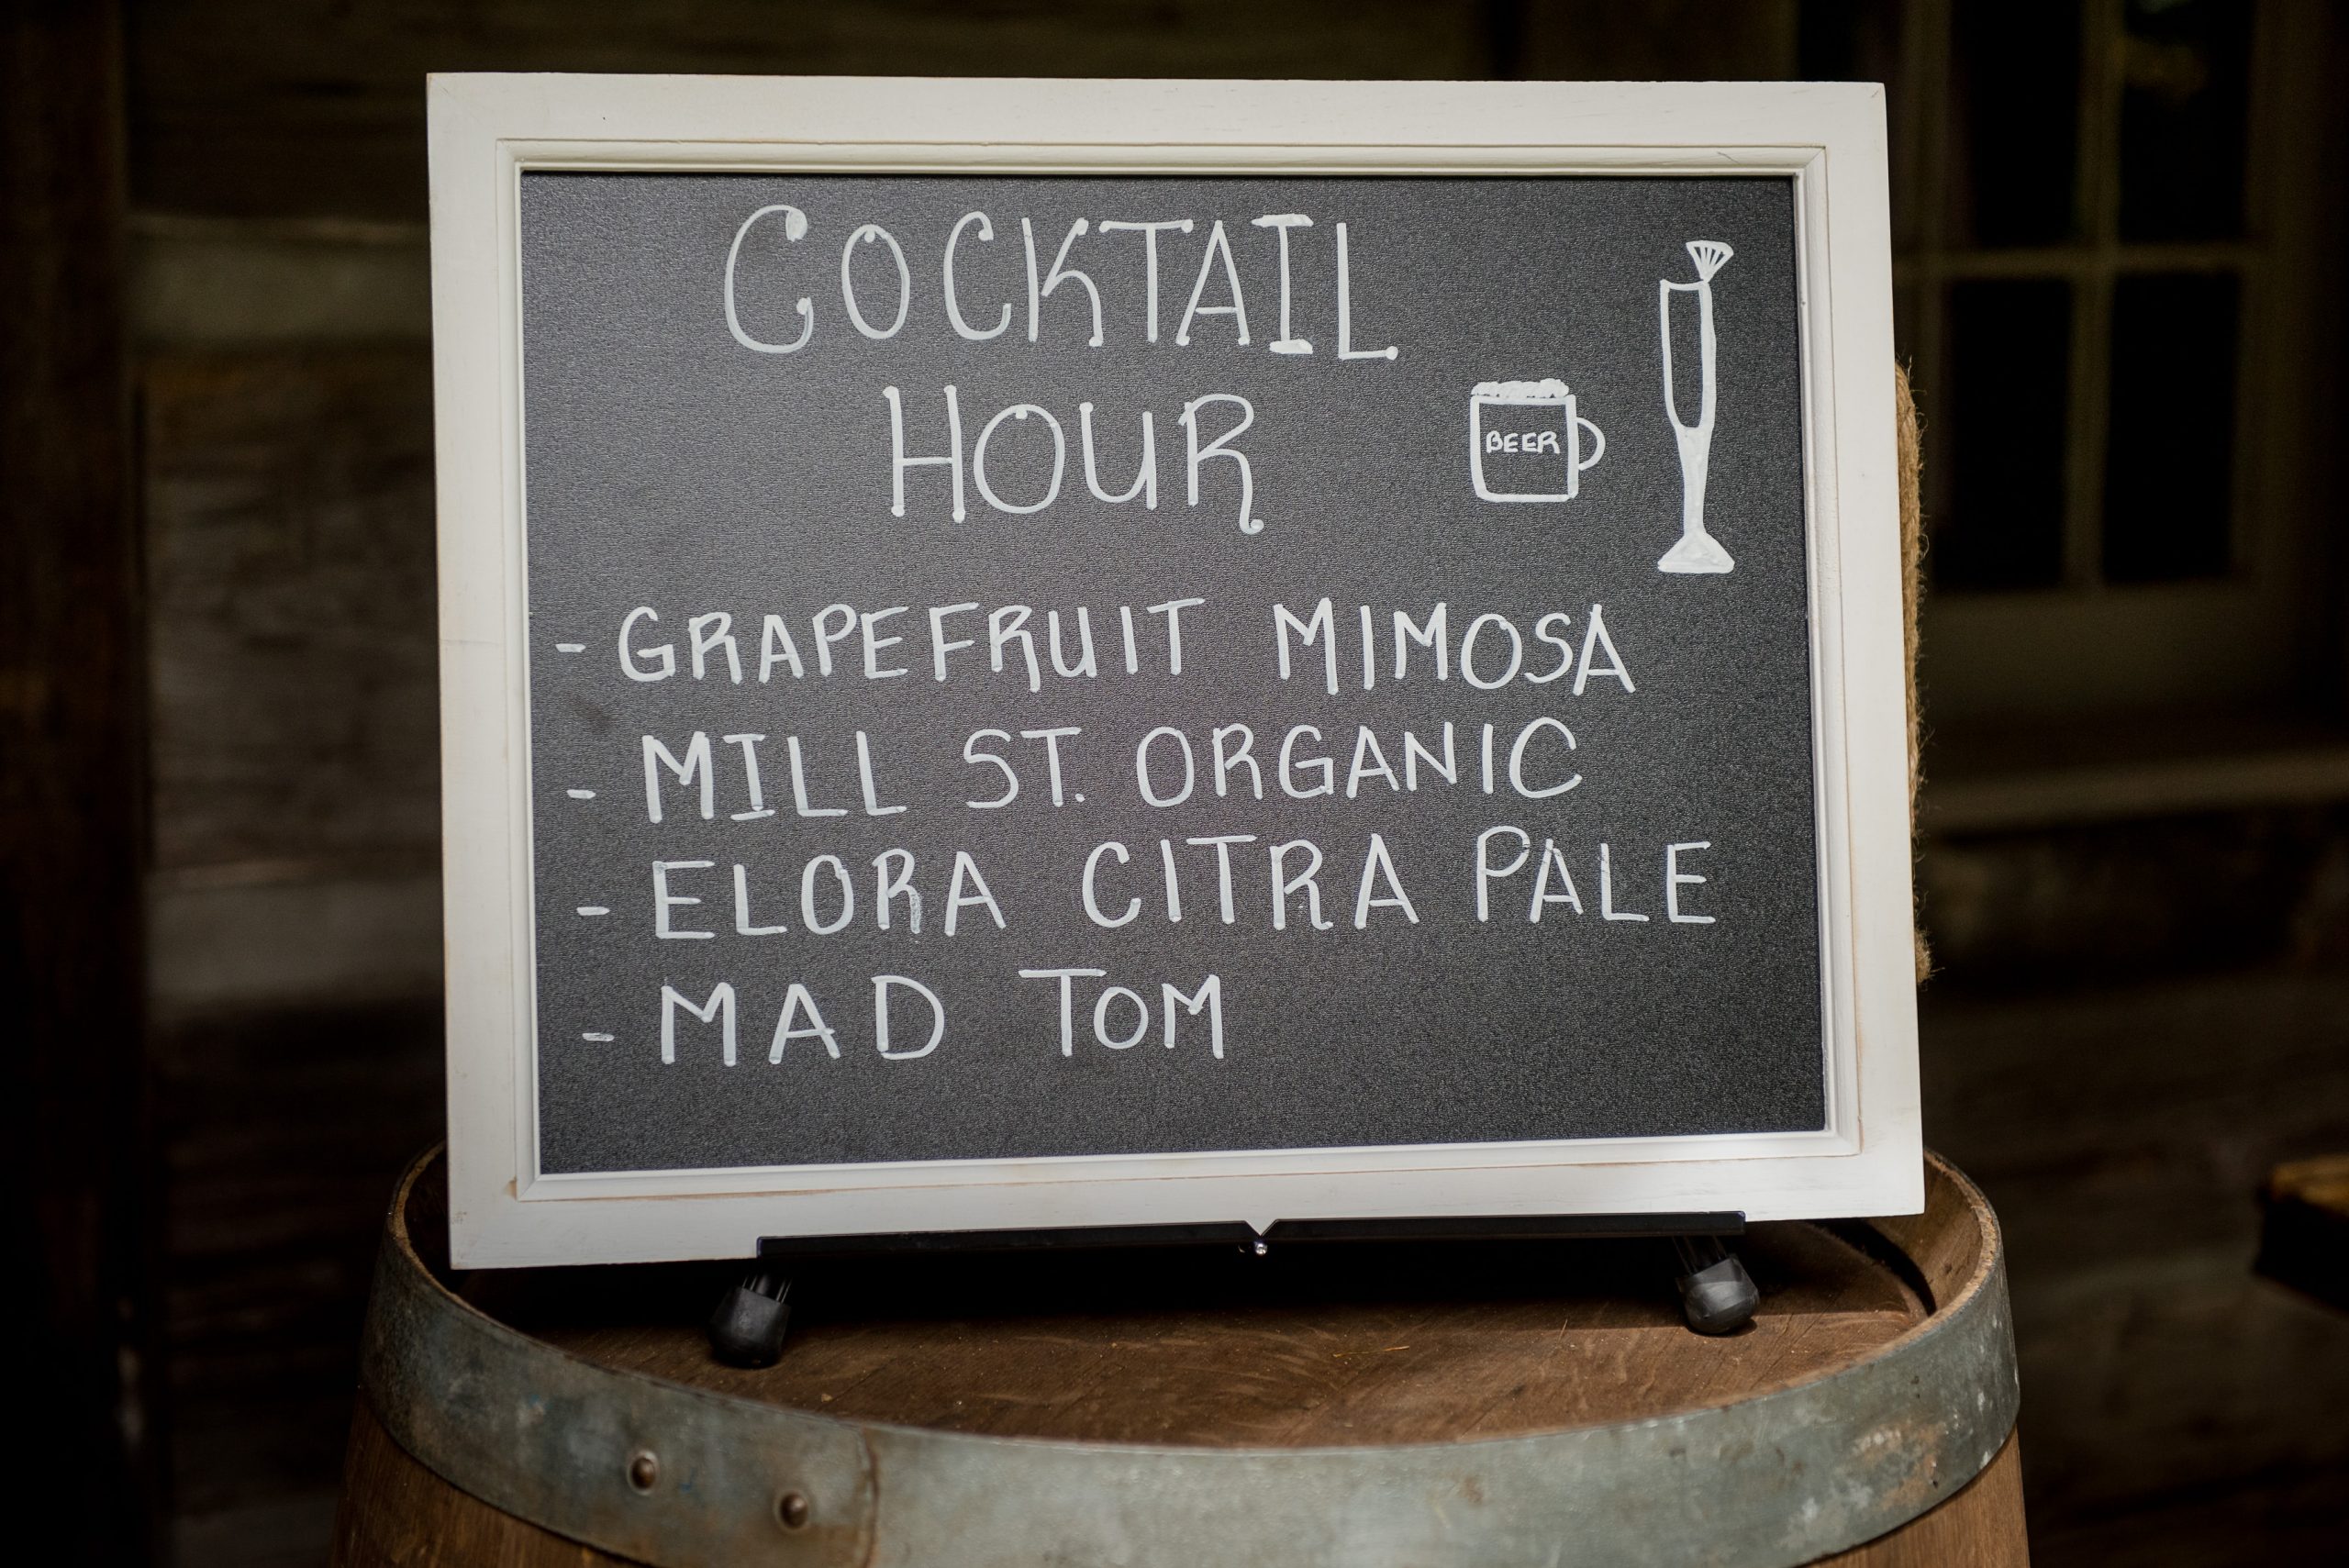 COCKTAIL
HOUR
BEER
- GRAPEFRUIT MIMOSA
- MILL ST. ORGANIC
- ELORA CITRA PALE
- MAD TOM